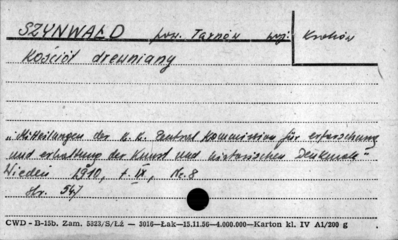 SZYNWAŁD pow. Tarnów woj: Kraków
Kościół drewniany
„Mitteilungen der K. K. Zentral Kommission für erforschung
und erhaltung der Kunst und historischen Denkmale"
Wiedeń 1910, t. IX, Nr. 8
str. 547
CWD - B-15b. Zam. 5323/S/Łź — 3016—Łak—15.11.56—4.000.000—Karton kl. IV A1/200 g